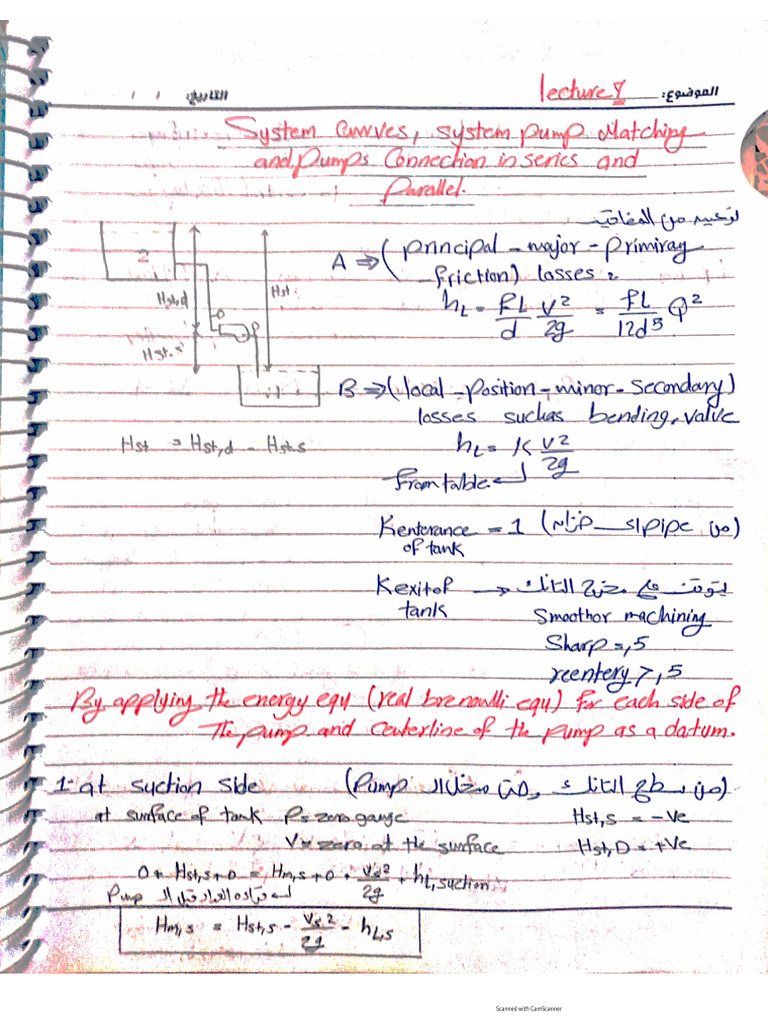 الموضوع: lecture 8
التاريخ: / /
System Curves, system pump Matching
and pumps Connection in series and
Parallel.
A ⇒ (principal - major - primiray
- friction) losses
hL = fL/d V²/2g = fL/12d⁵ Q²
2
Hst,d
Hst
Hst.s
1
B ⇒ (local - position - minor - secondary)
losses suchas bending, valve
hL = K V²/2g
From table
Hst = Hst,d - Hst.s
Kenterance = 1 (من pipe الـ خزان)
of tank
Kexit of → يتوقف على مخرج التانك
tank
Smooth or machining
Sharp = ,5
reentery > ,5
By applying the energy equ (real brenoulli equ) for each side of
The pump and centerline of the pump as a datum.
1- at suction side (من سطح التانك مدخل الـ Pump)
at surface of tank P = zero gauge Hst,s = -Ve
V = zero at the surface Hst,D = +Ve
0 + Hst,s + 0 = Hm,s + 0 + Vs²/2g + hL,suction
قراءة العداد قبل الـ Pump
Hm,s = Hst,s - Vs²/2g - hL,s
Scanned with CamScanner